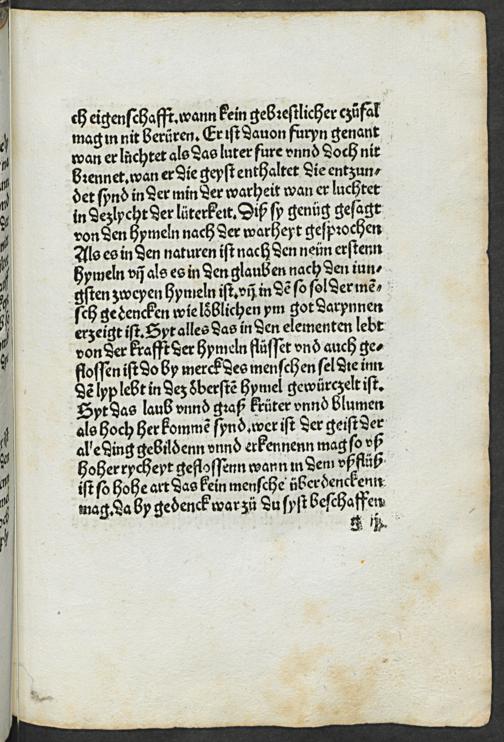 ch eigenschafft. wann kein gebrestlicher czůfal
mag in nit berüren. Er ist dauon furyn genant
wan er lüchtet als das luter fure vnnd doch nit
brennet. wan er die geyst enthaltet die entzun⸗
det synd in der min der warheit wan er luchtet
in dez lycht der lüterkeit. Diß sy genůg gesagt
von den hymeln nach der warheyt gesprochen
Als es in den naturen ist nach den neün erstenn
hymeln vñ als es in den glauben nach den iun⸗
gsten zweyen hymeln ist. vñ in dē so sol der mē⸗
sch gedencken wie löblichen ym got darynnen
erzeigt ist. Syt alles das in den elementen lebt
von der krafft der hymeln flüsset vnd auch ge⸗
flossen ist do by merck des menschen sel die inn
dē lyp lebt in dez öberstē hymel gewürczelt ist.
Syt das laub vnnd graß krüter vnnd blumen
als hoch her kommē synd. wer ist der geist der
al'e ding gebildenn vnnd erkennenn mag so vß
hoher rycheyt geflossenn wann in dem vßflüß
ist so hohe art das kein mensche überdenckenn
mag. da by gedenck war zů du syst beschaffen